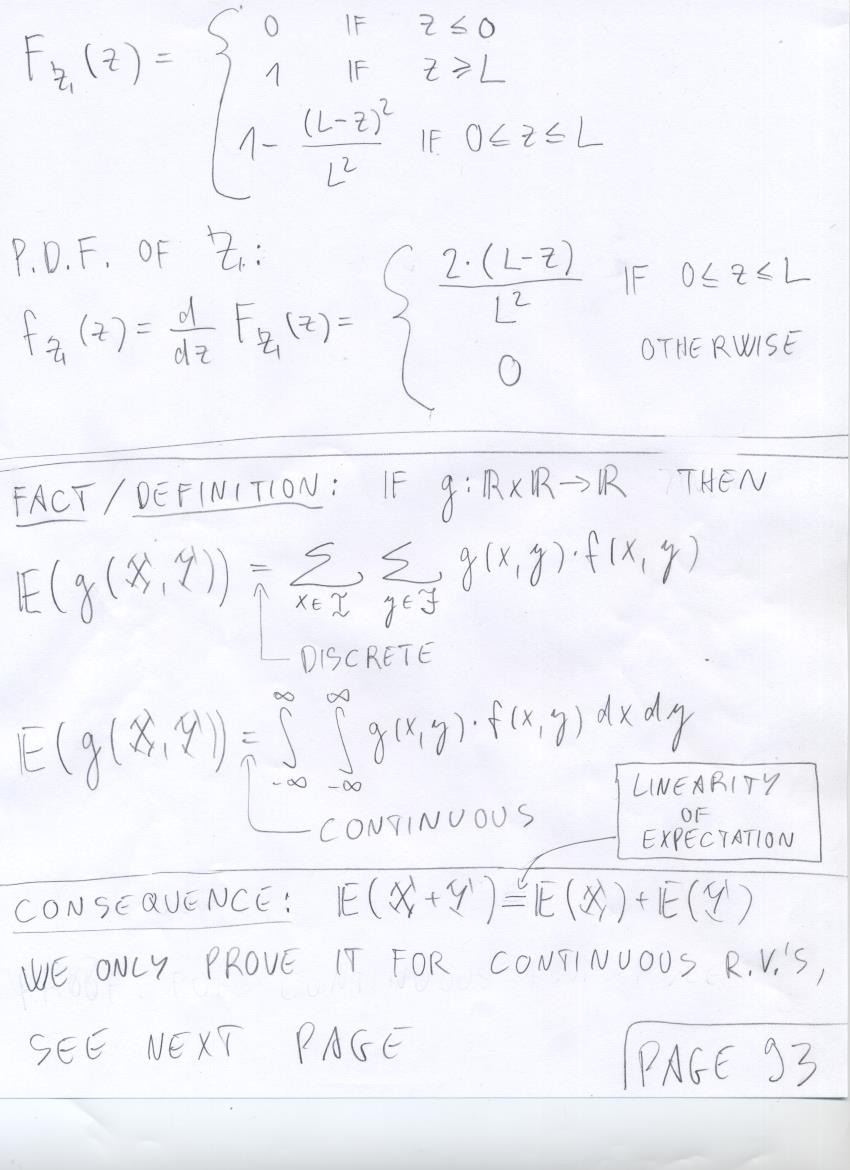 F_{Z_1}(z) = { 0 IF z ≤ 0
1 IF z ≥ L
1 - (L-z)^2 / L^2 IF 0 ≤ z ≤ L
P.D.F. OF Z_1:
f_{Z_1}(z) = d/dz F_{Z_1}(z) = { 2·(L-z) / L^2 IF 0 ≤ z ≤ L
0 OTHERWISE
FACT / DEFINITION: IF g: ℝ×ℝ→ℝ THEN
𝔼(g(X,Y)) = ∑_{x∈I} ∑_{y∈J} g(x,y)·f(x,y)
DISCRETE
𝔼(g(X,Y)) = ∫_{-∞}^{∞} ∫_{-∞}^{∞} g(x,y)·f(x,y) dx dy
CONTINUOUS
LINEARITY
OF
EXPECTATION
CONSEQUENCE: 𝔼(X+Y) = 𝔼(X) + 𝔼(Y)
WE ONLY PROVE IT FOR CONTINUOUS R.V.'S,
SEE NEXT PAGE
PAGE 93